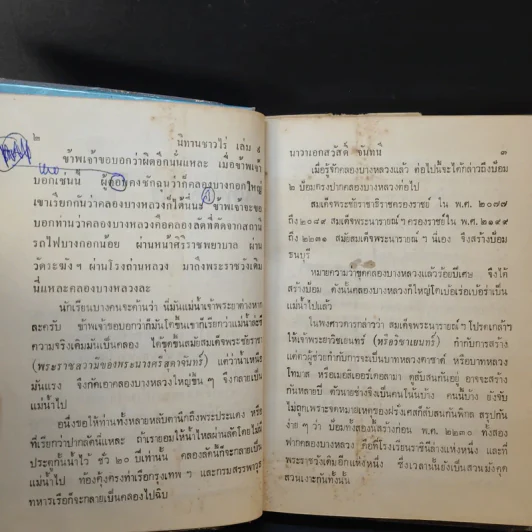 ๒
นิทานชาวไร่ เล่ม ๙
ข้าพเจ้าขอบอกว่าผิดอีกนั่นแหละ เมื่อข้าพเจ้า
บอกเช่นนี้ ผู้ คงชักฉุนว่าก็คลองบางกอกใหญ่
เขาเรียกกันว่าคลองบางหลวงก็ได้นี่นะ ข้าพเจ้าจะขอ
บอกท่านว่าคลองบางหลวงคือคลองลัดที่ตัดจากสถานี
รถไฟบางกอกน้อย ผ่านหน้าศิริราชพยาบาล ผ่าน
วัดระฆัง ฯ ผ่านโรงถ่านหลวง มาถึงพระราชวังเดิม
นี่แหละคลองบางหลวงละ
นักเรียนบางคนจะค้านว่า นี่มันแม่น้ำเจ้าพระยาต่างหาก
ละครับ ข้าพเจ้าขอบอกว่าก็มันโตขึ้นเขาก็เรียกว่าแม่น้ำละซี
ความจริงเดิมมันเป็นคลอง ได้ขุดขึ้นสมัยสมเด็จพระชัยราชา
(พระราชสวามีของพระนางศรีสุดาจันทร์) แต่ว่าน้ำเหนือ
มันแรง จึงกัดเอาคลองบางหลวงใหญ่ขึ้น ๆ จึงกลายเป็น
แม่น้ำไป
อนึ่งขอให้ท่านทั้งหลายหลับตานึกถึงพระประแดง หรือ
ที่เรียกว่าปากลัดนี่แหละ ถ้าเรายอมให้น้ำไหลผ่านลัดโดยไม่มี
ประตูกั้นน้ำไว้ ชั่ว ๒๐ ปีเท่านั้น คลองลัดนี้ก็จะกลายเป็น
แม่น้ำไป ท้องคุ้งตรงท่าเรือกรุงเทพ ฯ และกรมสรรพาวุธ
ทหารเรือก็จะกลายเป็นคลองไปฉิบ
นาวาเอกสวัสดิ์ จันทนี
๓
เมื่อรู้จักคลองบางหลวงแล้ว ต่อไปนี้จะได้กล่าวถึงป้อม
๒ ป้อมตรงปากคลองบางหลวงต่อไป
สมเด็จพระชัยราชาธิราชครองราชย์ ใน พ.ศ. ๒๐๗๗
ถึง ๒๐๘๙ สมเด็จพระนารายณ์ ฯ ครองราชย์ใน พ.ศ. ๒๑๙๙
ถึง ๒๒๓๑ สมัยสมเด็จพระนารายณ์ ฯ นี้เอง จึงสร้างป้อม
ธนบุรี
หมายความว่าขุดคลองบางหลวงแล้วร้อยปีเศษ จึงได้
สร้างป้อม ดังนั้นคลองบางหลวงก็ใหญ่โตเบ้อเร่อเบ้อร่าเป็น
แม่น้ำไปแล้ว
ในพงศาวดารกล่าวว่า สมเด็จพระนารายณ์ ฯ โปรดเกล้า ฯ
ให้เจ้าพระยาวิชเยนทร์ (หรือวิชาเยนทร์) กำกับการสร้าง
แต่ตัวผู้ช่วยกำกับการจะเป็นบาทหลวงคาซาด์ หรือบาทหลวง
โทมาส หรือเมอสิเออร์เดอลามา คู่สับสนกันอยู่ อาจจะสร้าง
กันหลายปี ตัวนายช่างจึงเป็นคนโน้นบ้าง คนนี้บ้าง ยังจับ
ไม่ถูกเพราะจดหมายเหตุของฝรั่งเศสก็สับสนกันพิกล สรุปกัน
ง่าย ๆ ว่า ป้อมทั้งสองนี้สร้างก่อน พ.ศ. ๒๒๓๐ ทั้งสอง
ฟากคลองบางหลวง คือที่โรงเรียนราชินีล่างแห่งหนึ่ง และที่
พระราชวังเดิมอีกแห่งหนึ่ง ซึ่งเวลานั้นยังเป็นสวนมังคุด
สวนเงาะกันทั้งนั้น